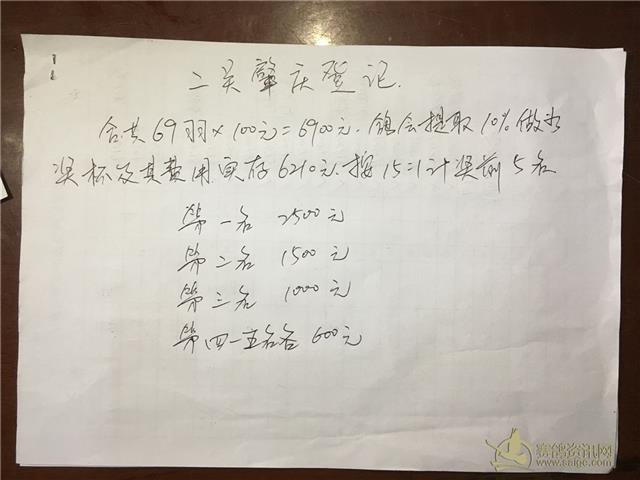 二关肇庆登记.
合共69羽×100元=6900元.鸽会提取10%做出
奖杯及其费用.实存6210元.按15:1计奖前5名
第一名 2500元
第二名 1500元
第三名 1000元
第四一五名各 600元
赛鸽资讯网
www.saige.com